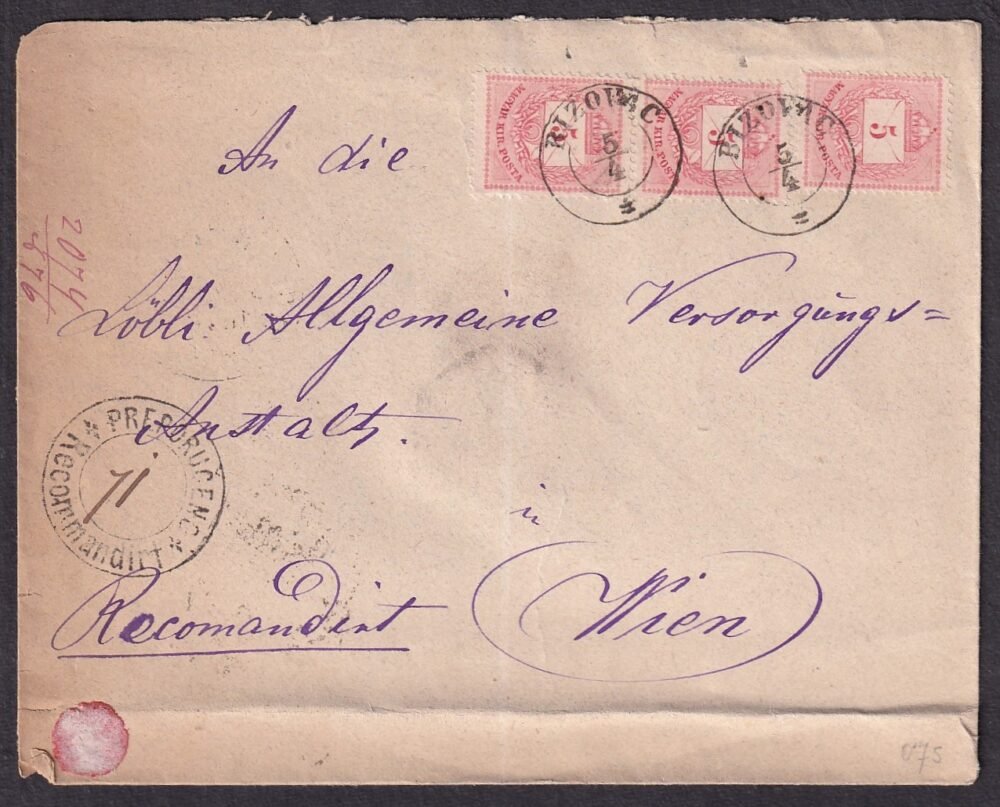 MAGYAR KIR. POSTA
5
MAGYAR KIR. POSTA
5
MAGYAR KIR. POSTA
5
BIZOVAC
5/4
BIZOVAC
5/4
An die
2074
Löbl. Allgemeine Versorgungs=
Anstalt.
PREPORUČENO
Recommandirt
71
in
Recomandirt
Wien